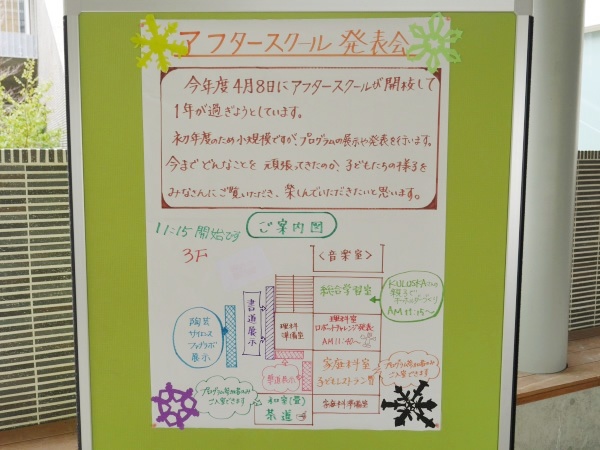 アフタースクール 発表会
今年度4月8日にアフタースクールが開校して
1年が過ぎようとしています。
初年度のため小規模ですが、プログラムの展示や発表を行います。
今まで どんなことを 頑張ってきたのか、子どもたちの様子を
みなさんにご覧いただき、楽しんでいただきたいと思います。
11:15 開始です
ご案内図
3F
<音楽室>
総合学習室
KULUSKAさんの
AM11:15〜
書道展示
陶芸
サイエンス
展示
理科
準備室
理科室
ロボットチャレンジ発表
AM11:40〜
書道展示
家庭科室
子どもレストラン
プログラム参加者のみ
ご入室できます
プログラム参加者のみ
ご入室できます
和室(畳)
茶道
家庭科準備室